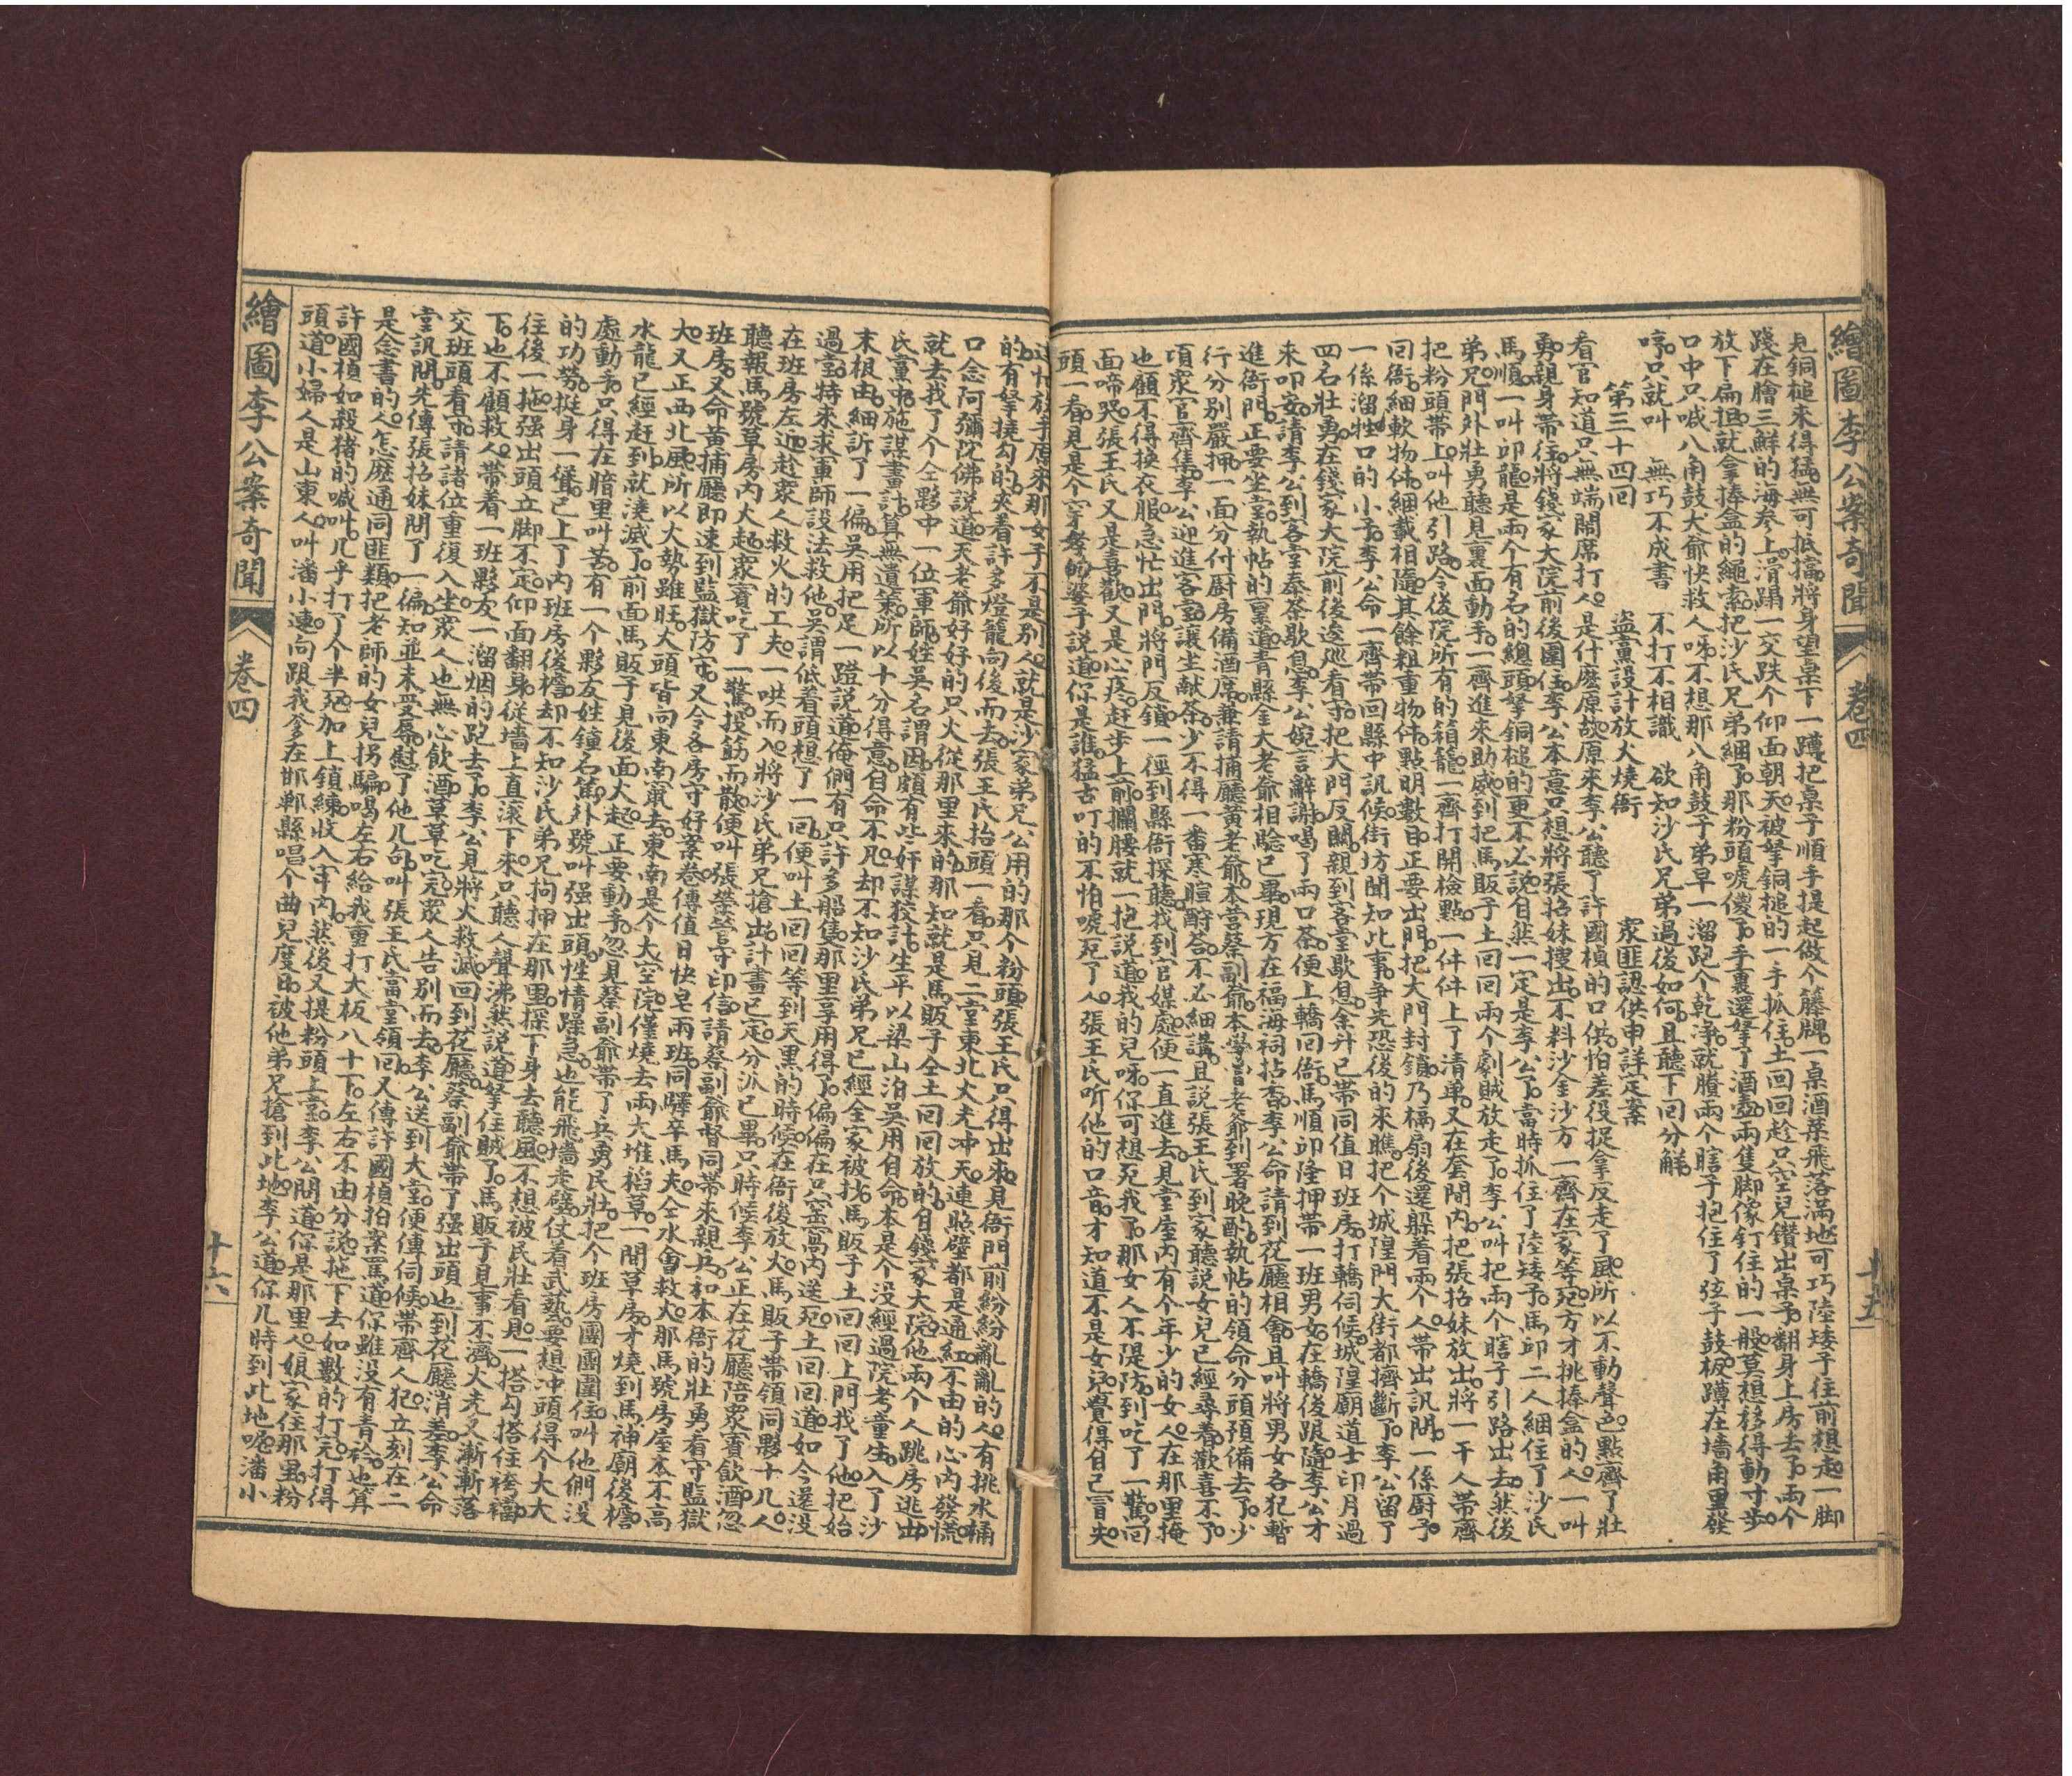 繪圖李公案奇聞 卷四 十五
見銅槌來得猛。無可抵搞。將身望桌下一蹲。把桌子順手提起做个籐牌。一桌酒菜飛落滿地。可巧陸矮子往前想走。一脚
踐在膾三鮮的海參上。滑蹋一交。跌个仰面朝天。被拏銅槌的一手抓住。土回回趁只空兒鑽出桌子。翻身上房去了。兩个
放下扁担。就拿捧盒的繩索。把沙氏兄弟綑了。那粉頭唬儍了。手裏還拏了酒壺。兩隻脚像釘住的一般。莫想移得動寸步。
口中只喊八角鼓大爺快救人呀。不想那八角鼓子弟早一溜跑个乾淨。就賸兩个瞎子抱住了弦子鼓板。蹲在墻角里發
哼。只就叫 無巧不成書 不打不相識 欲知沙氏兄弟過後如何。且聽下回分解。
第三十四回 盜黨設計放火燒衙 眾匪認供申詳定案
看官知道只無端鬧席打人。是什麽原故。原來李公聽了許國楨的口供。怕差役捉拿反走了風。所以不動聲色。點齊了壯
勇。親身帶往。將錢家大院前後圍住。李公本意只想將張招妹摟出。不料沙金沙方一齊在家等死。方才挑捧盒的人。一叫
馬順。一叫卯龍。是兩个有名的總頭。拏銅槌的更不必說。自然一定是李公了。當時抓住了陸矮子。馬卯二人綑住了沙氏
弟兄。門外壯勇聽見裏面動手。一齊進來助威。到把馬販子土回回兩个劇賊放走了。李公叫把兩个瞎子引路出去。然後
把粉頭帶上。叫他引路。令後院所有的箱籠。一齊打開檢點。一件件上了清單。又在套間內。把張招妹放出。將一干人帶齊
回衙。細軟物件。綑載相隨。其餘粗重物件。點明數目。正要出門。把大門封鎖。乃槅扇後還躱着兩个人。帶出訊問。一係厨子。
一係溜牲口的小子。李公命一齊帶回縣中訊候。街坊聞知此事。爭先恐後的來瞧。把个城隍門大街都擠斷了。李公留了
四名壯勇。在錢家大院前後逡廵看守。把大門反關。親到客堂歇息。余升已帶同值日班房。打轎伺候。城隍廟道士印月過
來叩安。請李公到客堂奉茶歇息。李公婉言辭謝。喝了兩口茶。便上轎回衙。馬順卯隆押帶一班男女。在轎後跟隨。李公才
進衙門。正要坐堂。執帖的稟道。青縣金大老爺相騐已畢。現方在福海祠拈香。李公命請到花廳相會。且叫將男女各犯暫
行分別嚴押。一面分付厨房備酒席。兼請捕廳黃老爺。本營蔡副爺。本學曾老爺到署晚酌。執帖的領命分頭預備去了。少
項眾官齊集。李公迎進客室。讓坐献茶。少不得一番寒暄酧荅。不必細講。且說張王氏到家聽說女兒已經尋着。歡喜不了。
也顧不得換衣服。急忙出門。將門反鎖。一徑到縣衙探聽。找到官媒處。便一直進去。見堂屋內有个年少的女人。在那里掩
面啼哭。張王氏又是喜歡。又是心疼。赶步上前。攔腰就一抱說道。我的兒呀。你可想死我了。那女人不隄防。到吃了一驚。回
頭一看。見是个穿孝的婆子說道。你是誰。猛古叮的不怕唬死了人。張王氏听他的口音。才知道不是女兒。覺得自已冒失。
連忙放手。原來那女子不是別人。就是沙家弟兄公用的那个粉頭。張王氏只得出來。見衙門前紛紛亂亂的人。有挑水桶
的。有拏撓勾的。夾看許多燈籠。向後而去。張王氏抬頭一看。只見二堂東北火光冲天。連照壁都是通紅。不由的心內發慌。
口念阿彌陀佛說道。天老爺好好的只火從那里來的。那知就是馬販子仝土回回放的。自錢家大院他兩个人跳房逃出。
就去找了个仝夥中一位軍師。姓吳名謂。因頗有些奸謀狡計。生平以梁山泊吳用自命。本是个没經過院考童生。入了沙
氏黨中。施謀畫計。算無遺策。所以十分得意。自命不凡。却不知沙氏弟兄已經全家被抄。馬販子土回回上門找了他。把始
末根由。細訴了一徧。吳用把足一蹬說道。俺們有只許多船隻。那里享用得了。偏偏在只窰窩內送死。土回回道。如今還没
過堂。特來求軍師設法救他。吳謂低着頭想了一回。便叫土回回等到天黑的時候。在衙後放火。馬販子帶領同夥十几人
在班房左近。趁眾人救火的工夫。一哄而入。將沙氏弟兄搶出。計畫已定。分派已畢。只時候李公正在花廳陪眾賓飲酒。忽
聽報馬號草房內火起。眾賓吃了一驚。投筯而散。便叫張榮簽守印信。請蔡副爺督同帶來親兵。和本衙的壯勇看守監獄
班房。又命黃捕廳即速到監獄防守。又令各房守好案卷。傳值日快皂兩班。同驛卒馬夫。仝水會救火。那馬號房屋本不高
大。又正西北風。所以火勢雖旺。火頭皆向東南颳去。東南是个大空院。僅燒去兩大堆稻草。一間草房。才燒到馬神廟後檐。
水龍已經赶到。就澆滅了。前面馬販子見後面火起。正要動手。忽見蔡副爺帶了兵勇民壯。把个班房團團圍住。叫他們没
處動手。只得在暗里叫苦。有一个夥友姓鐘名篤。外號叫强出頭。性情躁急。也能飛墻走壁。仗着武藝。要想冲頭得个大大
的功勞。挺身一聳。已上了內班房後檐。却不知沙氏弟兄拘押在那里。探下身去聽風。不想被民壯看見。一搭勾搭住袴襠。
往後一拖。强出頭立脚不定。仰面翻身。從墻上直滚下來。只聽人聲沸然說道。拏住賊了。馬販子見事不濟。火光又漸漸落
下。也不顧救人。帶着一班夥友。一溜烟的跑去了。李公見將火救滅。回到花廳。蔡副爺帶了强出頭。也到花廳消差。李公命
交班頭看守。請諸位重復入坐。眾人也無心飲酒。草草吃完。眾人告別而去。李公送到大堂。便傳伺候。帶齊人犯。立刻在二
堂訊問。先傳張招妹問了一徧。知並未受辱。慰了他几句。叫張王氏當堂領回。又傳許國楨拍案罵道。你雖没有青衿。也算
是念書的人。怎麽通同匪類。把老師的女兒拐騙。喝左右給我重打大板八十下。左右不由分說。拖下去如數的打完。打得
許國楨如殺猪的喊叫。几乎打了个半死。加上鎖練。收入牢內。然後又提粉頭上堂。李公問道。你是那里人。娘家住那里。粉
頭道。小婦人是山東人。叫潘小蓮。向跟我爹在邯鄲縣唱个曲兒度日。被他弟兄搶到此地。李公道。你几時到此地呢。潘小
繪圖李公案奇聞 卷四 十六